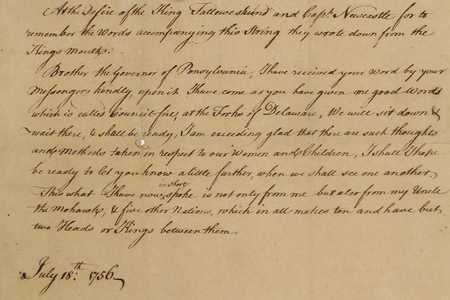 At the Desire of the King Tattoweskund and Capt. Newcastle for to
remember the Words accompanying this String they wrote down from the
Kings Mouth.
Brother the Governor of Pensylvania, I have received your Word by your
Messengers kindly, upon it I have come as you have given me good Words
which is called Council fire, at the Forks of Delaware, We will sit down &
wait there, & shall be ready, I am exceeding glad that there are such thoughts
and Methods taken in respect to our Women and Children, I shall I hope
be ready to let you know a little farther, when we shall see one another.
This what I have now in Short spoke is not only from me but also from my Uncle
the Mohawks, & five other Nations, which in all makes ten and have but
two Heads or Kings between them.
July 18.th 1756